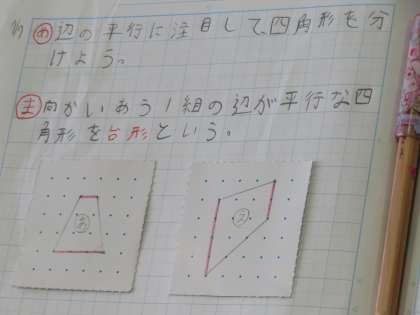 め 辺の平行に注目して、四角形を分
けよう。
ま 向かいあう1組の辺が平行な四
角形を台形という。
あ